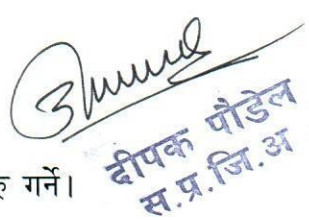 दीपक पौडेल
स.प्र.जि.अ
गर्ने।